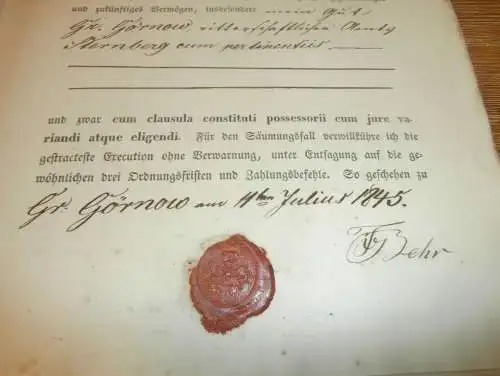 und zukünftiges Vermögen, insbesondere mein Gut
Gr. Görnow, ritterschaftlichen Amts
Sternberg cum pertinentiis
und zwar cum clausula constituti possessorii cum jure va-
riandi atque eligendi. Für den Säumungsfall verwillkühre ich die
gestracteste Execution ohne Verwarnung, unter Entsagung auf die ge-
wöhnlichen drei Ordnungsfristen und Zahlungsbefehle. So geschehen zu
Gr. Görnow am 11ten Julius 1845.
Behr